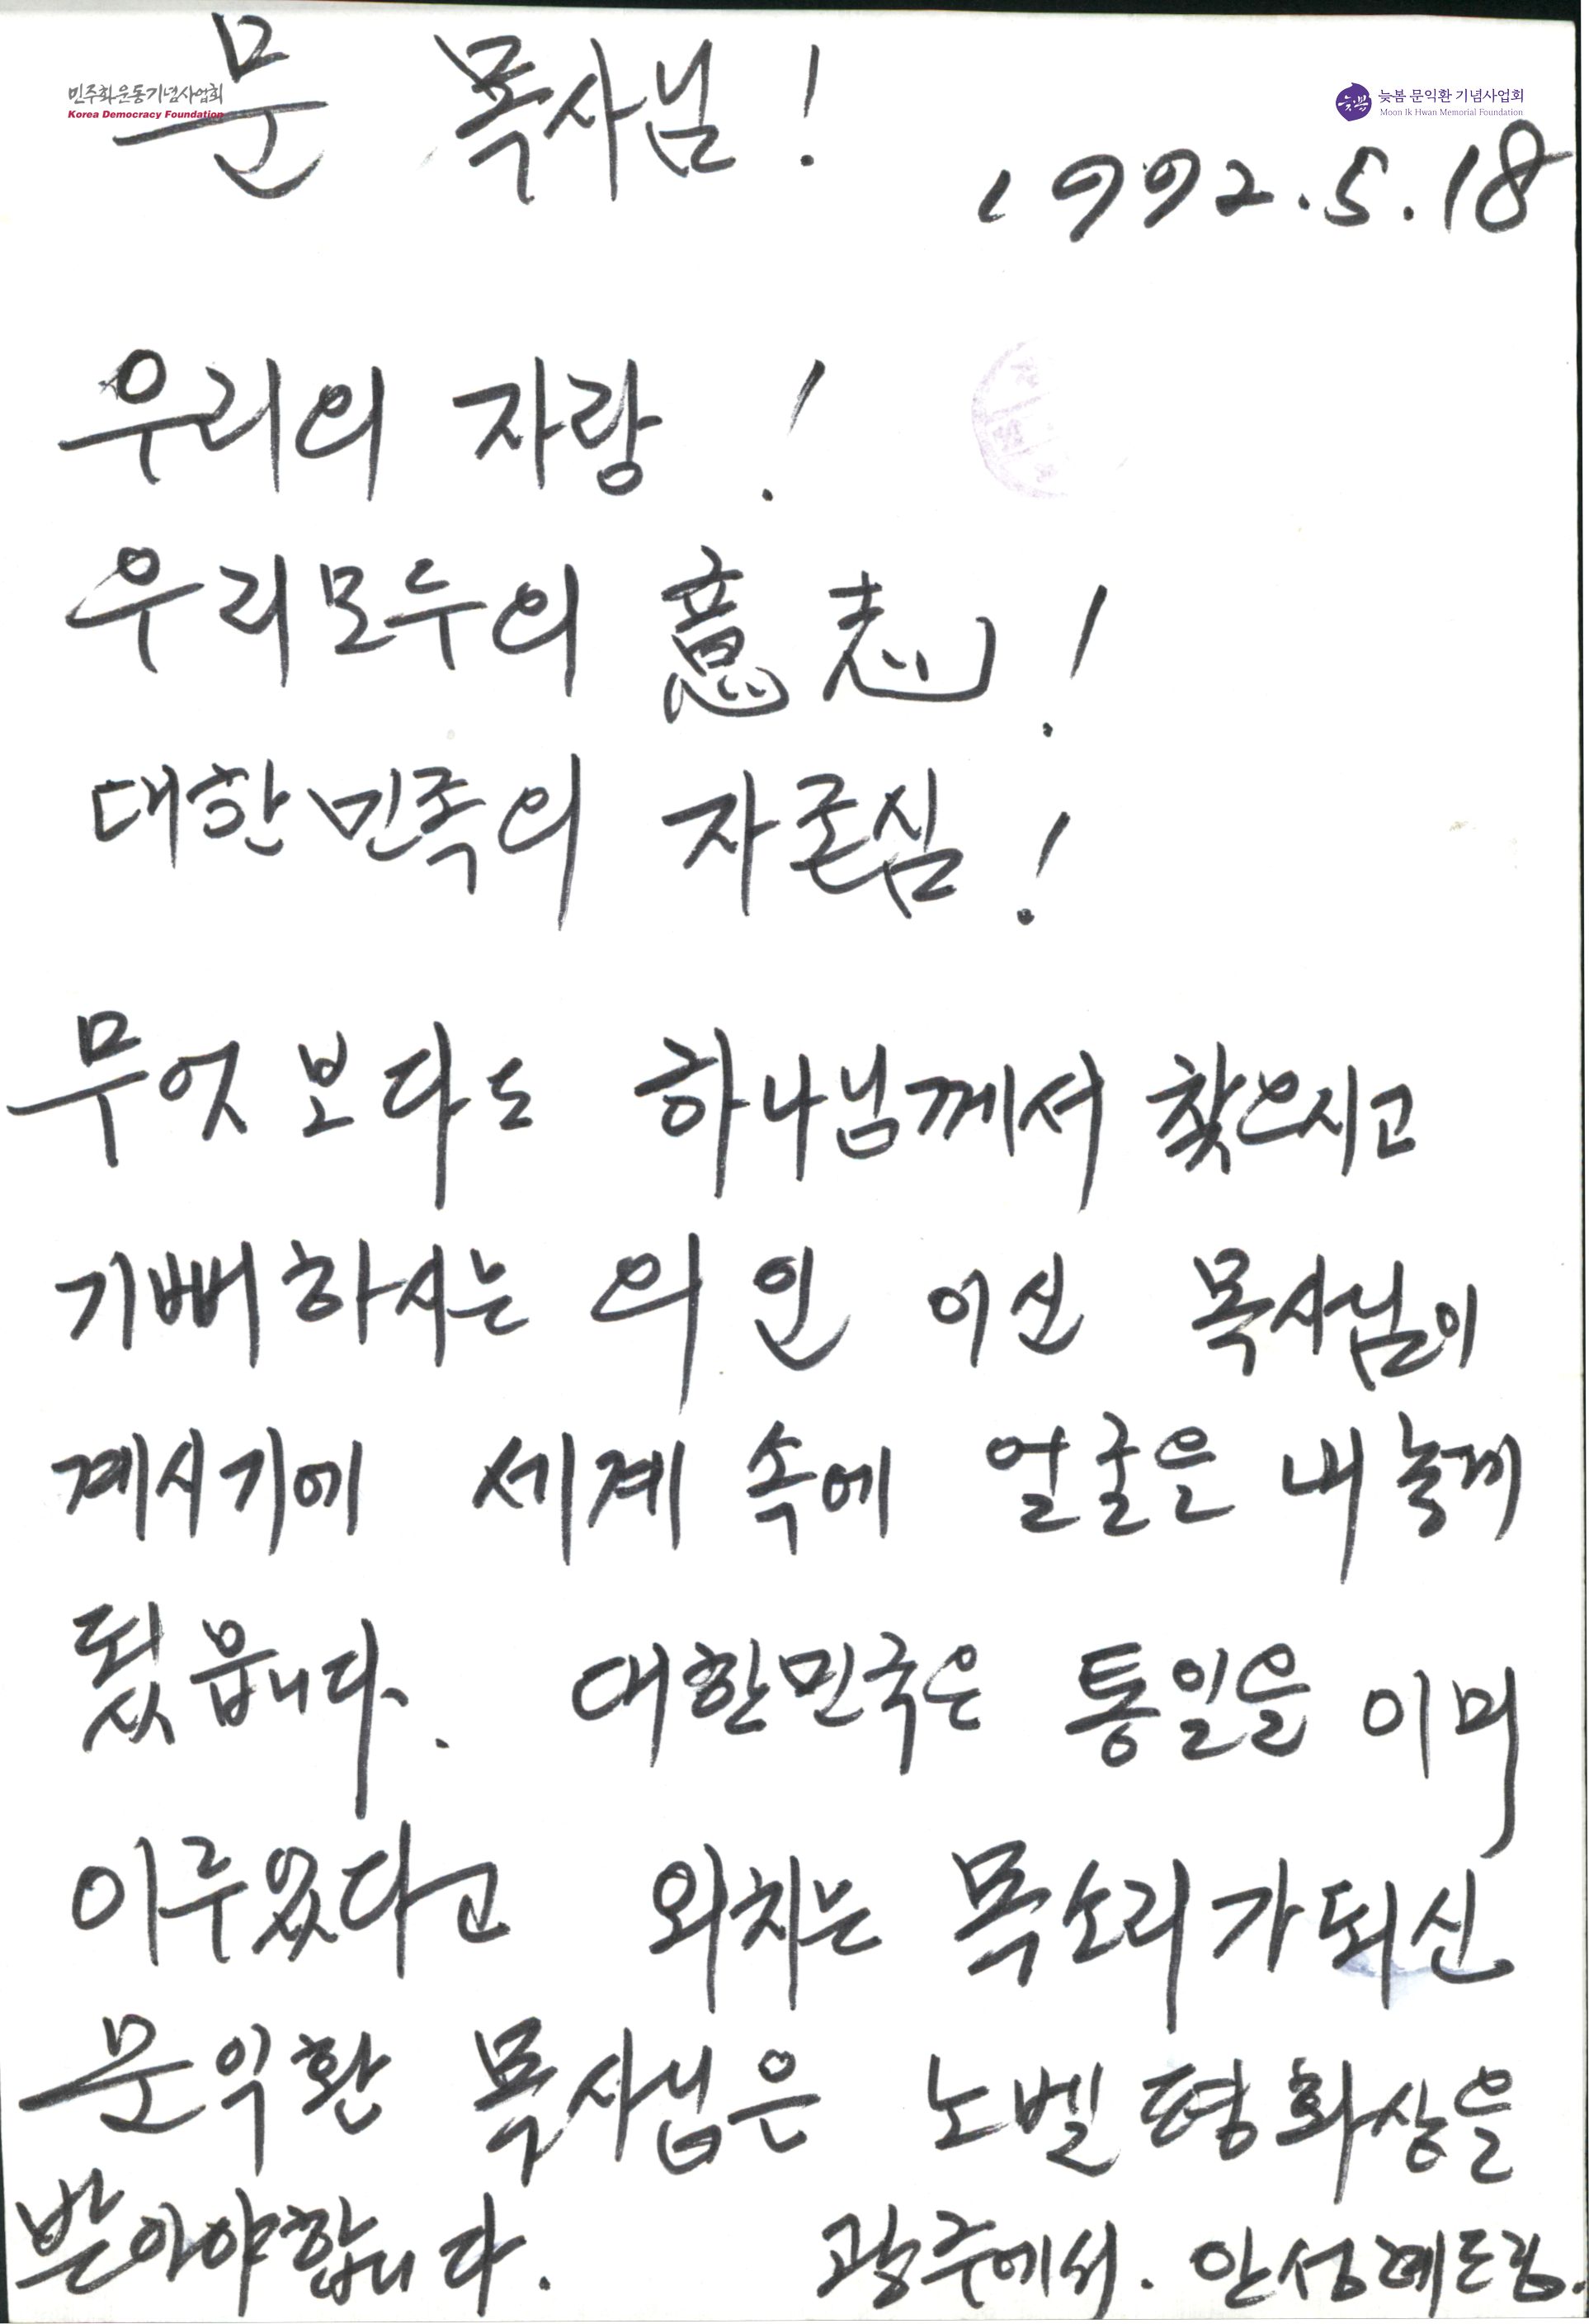 문 목사님!
민주화운동기념사업회
Korea Democracy Foundation
늦봄 문익환 기념사업회
Moon Ik Hwan Memorial Foundation
1992.5.18
우리의 자랑!
우리모두의 意志!
대한민족의 자존심!
무엇보다도 하나님께서 찾으시고
기뻐하시는 의인 이신 목사님이
계시기에 세계 속에 얼굴을 내놓게
됬읍니다. 대한민국은 통일을 이미
이루었다고 외치는 목소리가 되신
문익환 목사님은 노벨평화상을
받아야합니다. 광주에서. 안성례드림.